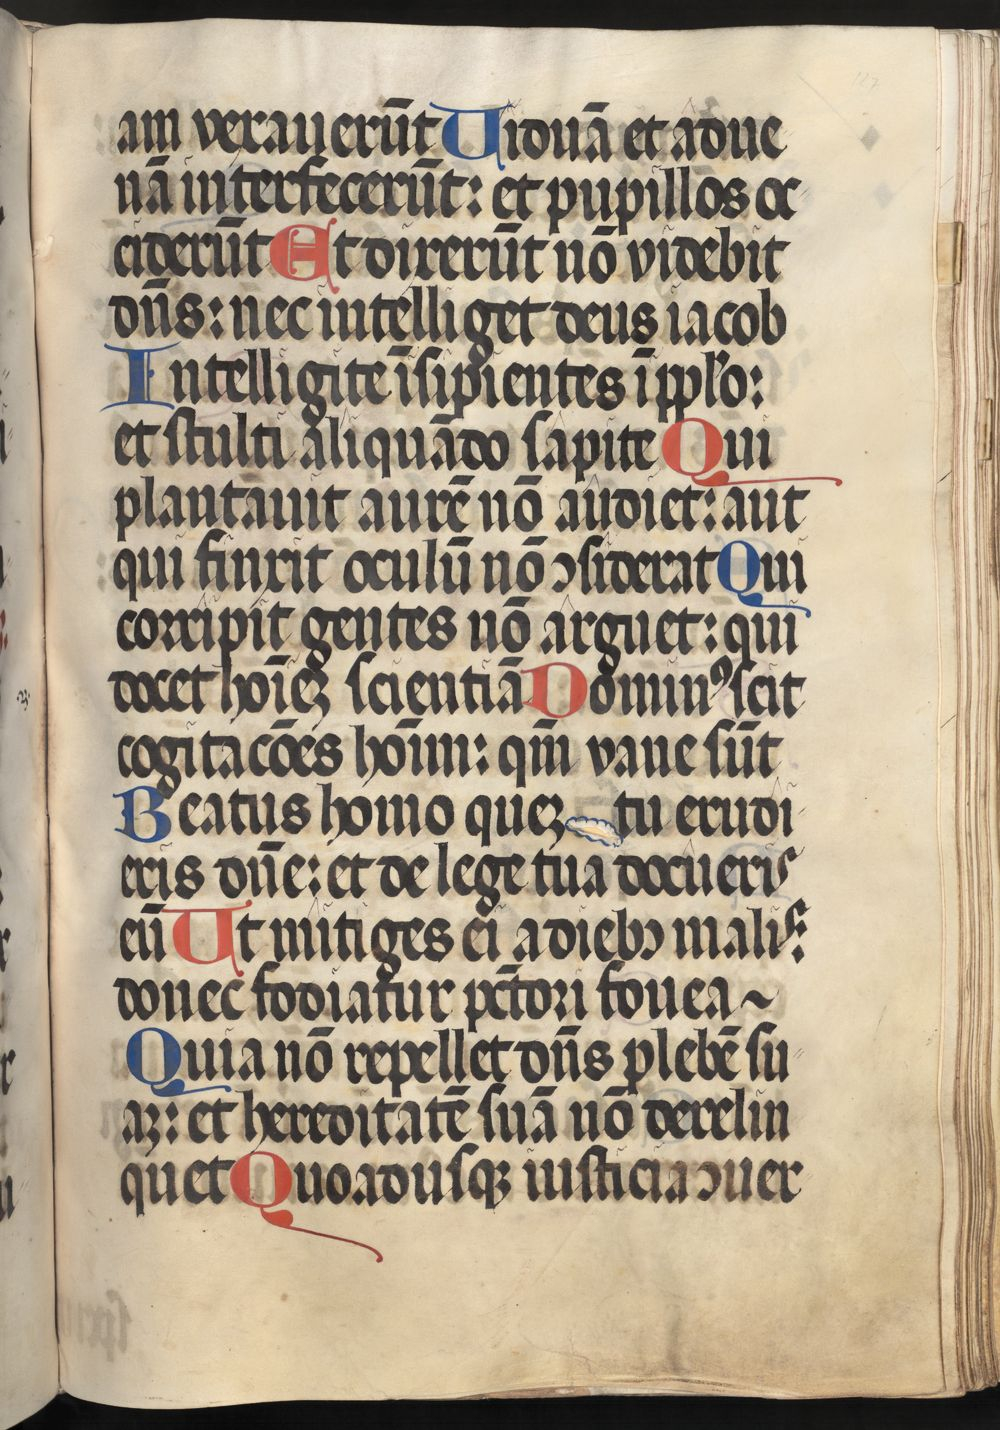 am vexauerūt Uiduā et adue
nā interfecerūt: et pupillos oc
ciderūt Et dixerūt nō videbit
dn̄s: nec intelliget deus iacob
Intelligite īsipientes ī pplo:
et stulti aliquādo sapite Qui
plantauit aurē nō audiet: aut
qui finxit oculū nō ↄsiderat Qui
corripit gentes nō arguet: qui
docet hoīeꝫ scientiā Dominꝰ scit
cogitacōes hoīnu: qm̄ vane sūt
Beatus homo queꝫ tu erudi
eris dn̄e: et de lege tua docueris
eū Ut mitiges ei a diebꝫ malis:
donec fodiatur pct̄ori fouea ~
Quia nō repellet dn̄s plebē su
aꝫ: et hereditatē suā nō derelin
quet Quoadusqꝫ iusticia ↄuer